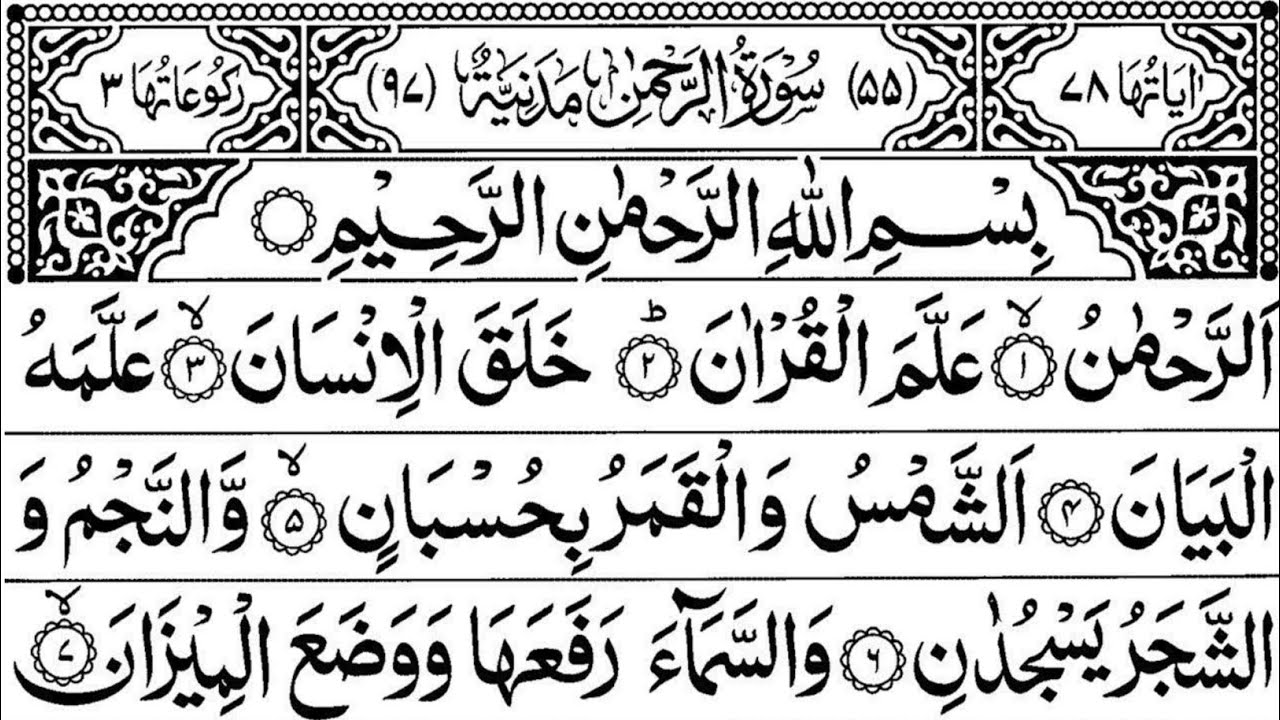 اٰيَاتُهَا ٧٨ (٥٥) سُوْرَةُ الرَّحْمٰنِ مَدَنِيَّةٌ (٩٧) رُكُوْعَاتُهَا ٣
بِسْمِ اللّٰهِ الرَّحْمٰنِ الرَّحِيْمِ
اَلرَّحْمٰنُ ۙ‏﴿١﴾ عَلَّمَ الْقُرْاٰنَ ؕ‏﴿٢﴾ خَلَقَ الْاِنْسَانَ ۙ‏﴿٣﴾ عَلَّمَهُ
الْبَيَانَ ﴿۴﴾ اَلشَّمْسُ وَالْقَمَرُ بِحُسْبَانٍ ۙ‏﴿۵﴾ وَّالنَّجْمُ وَ
الشَّجَرُ يَسْجُدٰنِ ﴿۶﴾ وَالسَّمَآءَ رَفَعَهَا وَوَضَعَ الْمِيْزَانَ ۙ‏﴿۷﴾